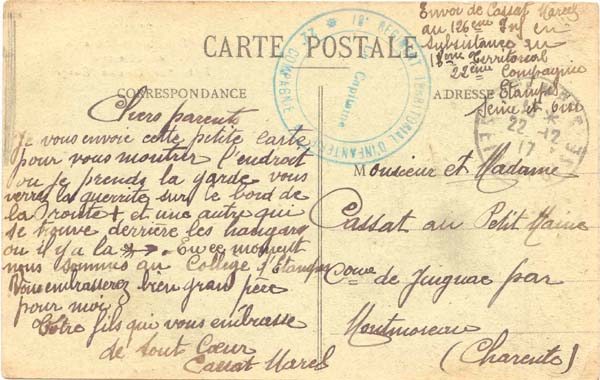 Envoi de Cassat Marcel
au 126eme Inf en
subsistance au
18eme Territorial
22eme Compagnie
Etampes
Seine et Oise
CARTE POSTALE
CORRESPONDANCE
ADRESSE
22e COMPAGNIE
18e REGIMENT TERRITORIAL D'INFANTERIE
Capitaine
22-12
17
Chers parents
Je vous envoie cette petite carte
pour vous montrer l'endroit
ou je prends la garde vous
verrez la guerrite sur le bord de
la route + et une autre qui
se trouve derrière les hangars
ou il y a la En ce moment
nous sommes au College d'Etampes
Vous embrasserez bien gran père
pour moi
Votre fils qui vous embrasse
de tout Cœur
Cassat Marcel
Monsieur et Madame
Cassat au Petit Maine
Cone de Juignac par
Montmoreau
(Charente)